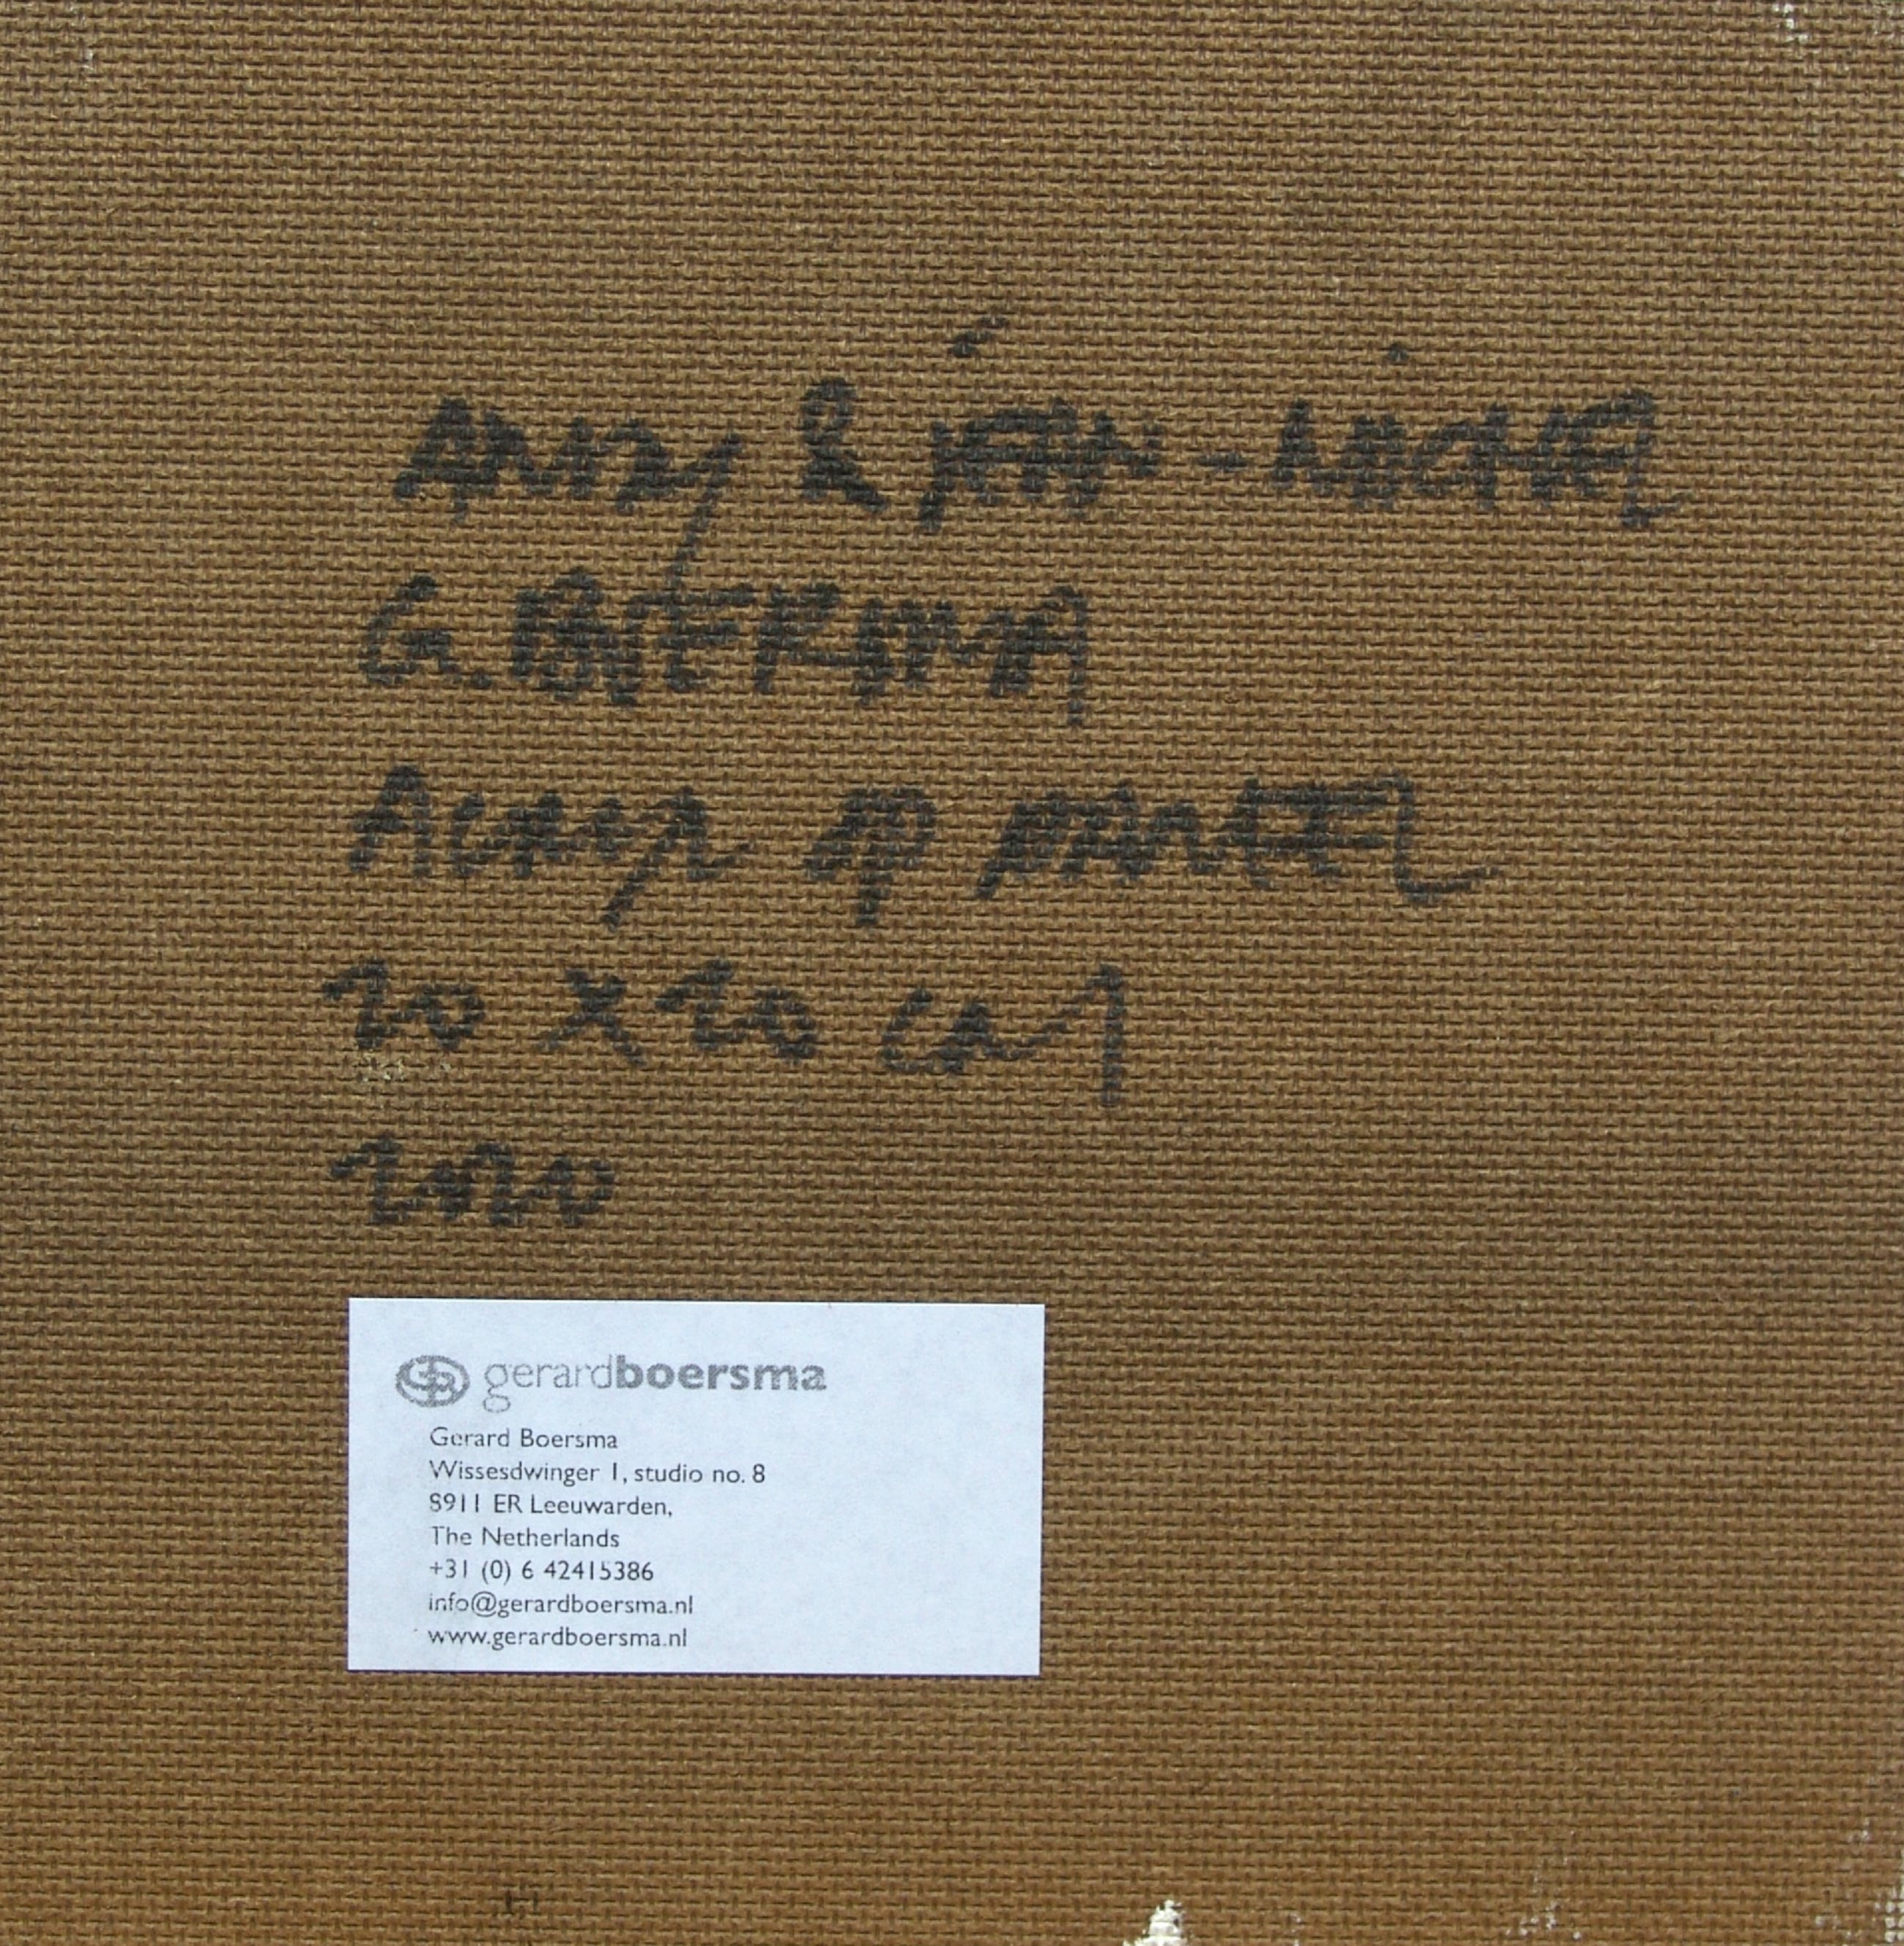 ANDY & jEAN-MiCHEL
G. BOERSMA
ACRYL OP PANEEL
20 x 20 cm
2020
gerardboersma
Gerard Boersma
Wissesdwinger 1, studio no. 8
8911 ER Leeuwarden,
The Netherlands
+31 (0) 6 42415386
info@gerardboersma.nl
www.gerardboersma.nl